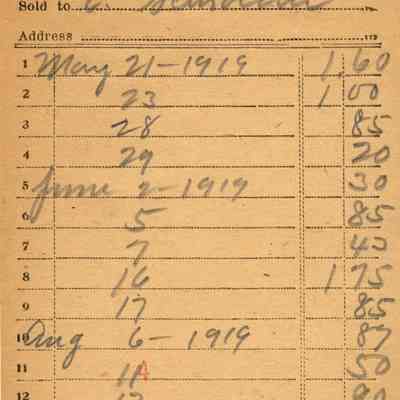 Sold to
Address
1 May 21-1919 1.60
2 23 1 00
3 28 85
4 29 20
5 June 2-1919 30
6 5 85
7 7 45
8 16 1 75
9 17 85
10 Aug 6-1919 87
11 11 50
12